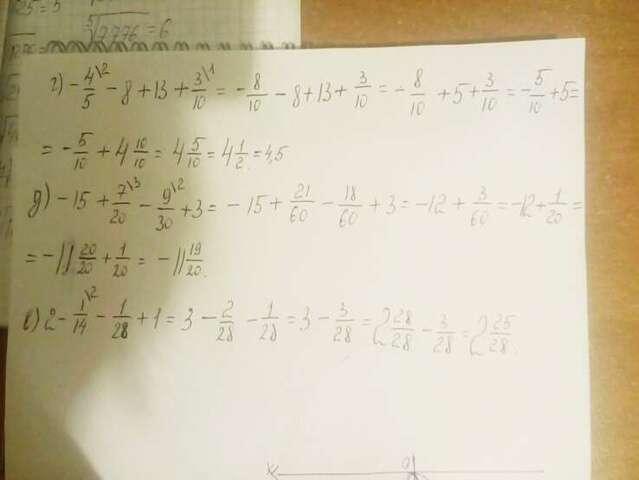 25 = 5
⁵√7776 = 6
г) -4/5\2 - 8 + 13 + 3/10\1 = -8/10 - 8 + 13 + 3/10 = -8/10 + 5 + 3/10 = -5/10 + 5 =
= -5/10 + 4 10/10 = 4 5/10 = 4 1/2 = 4,5
д) -15 + 7/20\3 - 9/30\2 + 3 = -15 + 21/60 - 18/60 + 3 = -12 + 3/60 = -12 + 1/20 =
= -11 20/20 + 1/20 = -11 19/20.
е) 2 - 1/14\2 - 1/28 + 1 = 3 - 2/28 - 1/28 = 3 - 3/28 = 2 28/28 - 3/28 = 2 25/28.